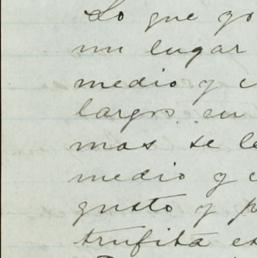 Lo que yo
un lugar
medio y c
largos en
mas se le
medio y c
gusto y p
trufita es